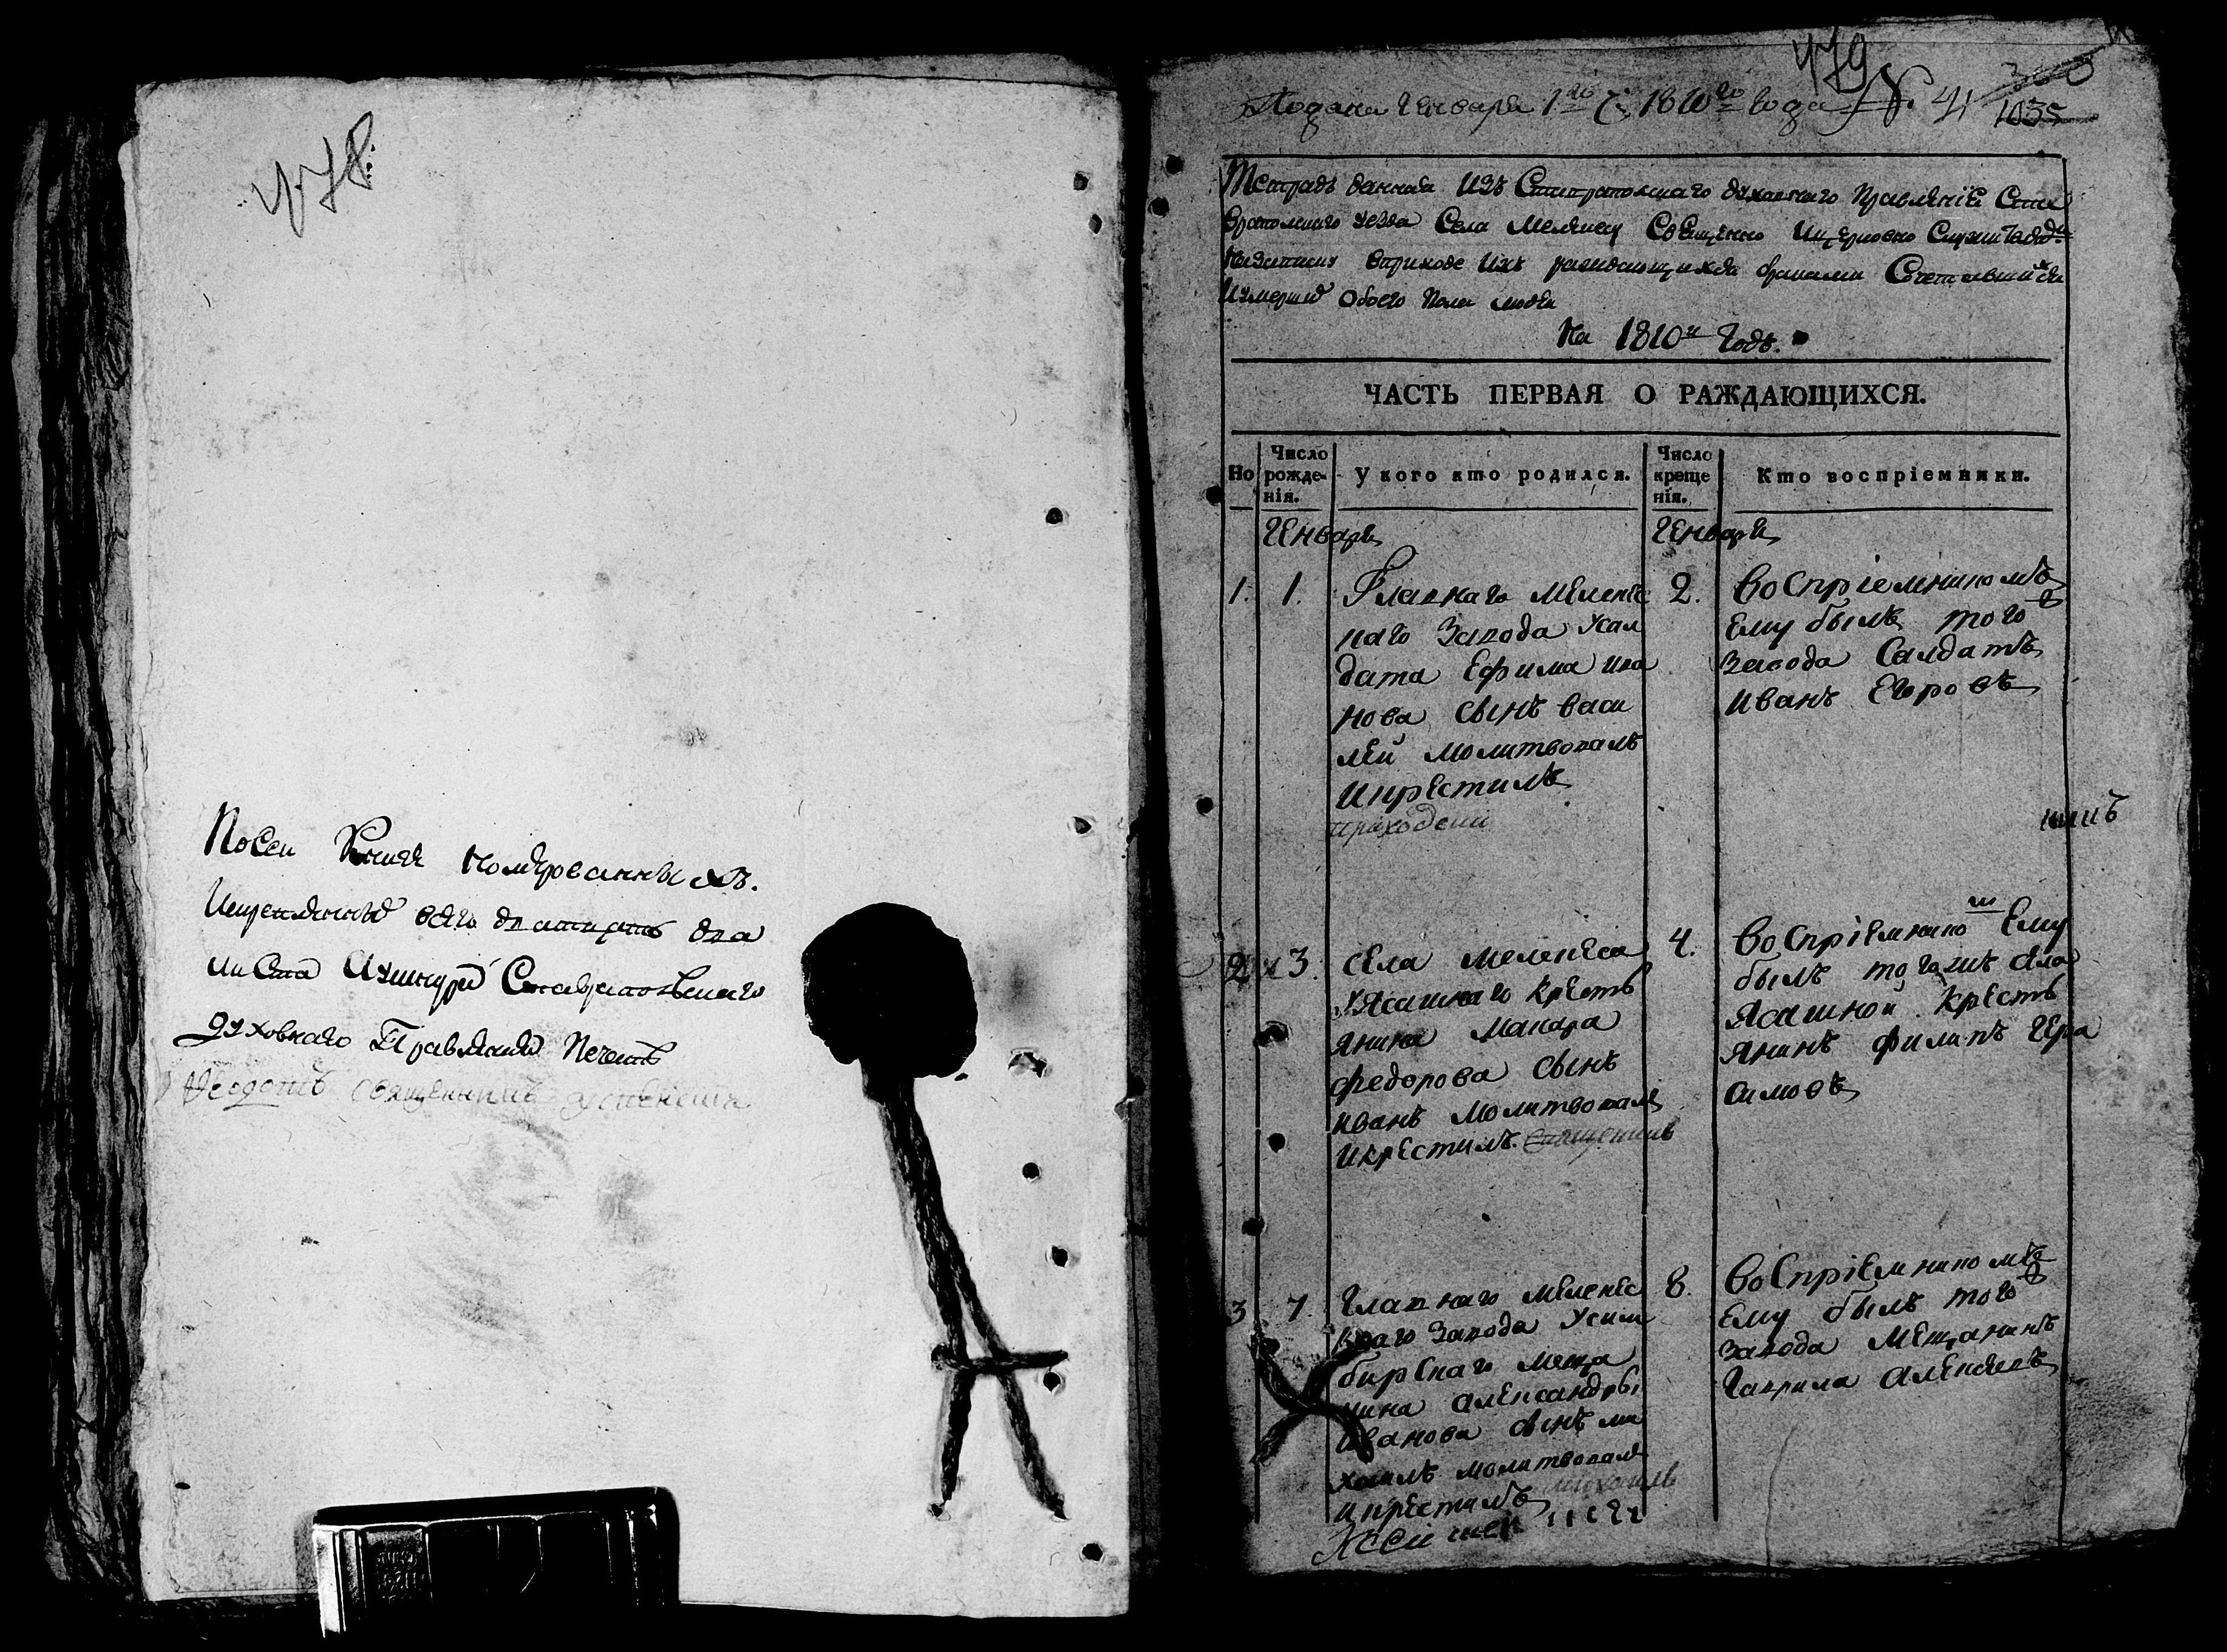 478
Посеи Книге номерованныхъ.
Искрепленныхъ всего дватцать два
листа Ушнура Ставропольскаго
духовнаго Правления Печать
479
Подана Генваря 1го ч. 1810го года № 41
360
1035
Тетрадь данная Изъ Ставропольскаго духовнаго Правленія Став
Вропольскаго уезда Села Мелекеса Священно Ицерковно Служителямъ
Назаписку вприходе Ихъ раждающихся браками Сочетавшихся
Иумершихъ Обоего Пола людей
На 1810й Годъ.
ЧАСТЬ ПЕРВАЯ О РАЖДАЮЩИХСЯ.
Но
Число рожде- нія.
У кого кто родился.
Число креще нія.
Кто воспріемники.
Генваря
Генваря
1. 1.
Главнаго Мелекес
каго Завода Усал
дата Ефима ива
нова сынъ васи
лей молитвовалъ
икрестилъ
2.
Воспріемникомъ
Ему былъ того
Завода Салдатъ
Иванъ Егоровъ
2 3.
Села Мелекеса
уясашнаго кресть
янина Макара
Федорова сынъ
иванъ молитвовалъ
икрестилъ.
4.
Воспріемнико м Ему
былъ тогожъ села
ясашной кресть
янинъ Филипъ Гера
симовъ
3 7.
Главнаго Мелекес
каго Завода Усим
бирскаго меща
нина александры
иванова сынъ ми
хаилъ молитвовалъ
икрестилъ
8.
Воспріемникомъ
Ему былъ того
Завода Мещанинъ
Гаврила Алексеевъ